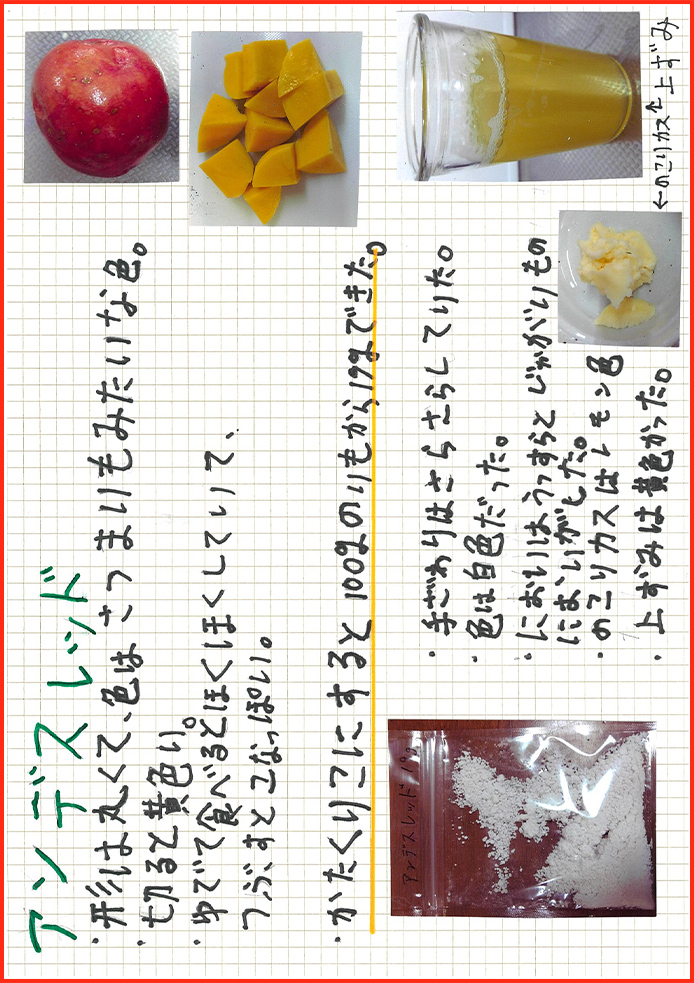 アンデスレッド
・形は丸くて、色はさつまいもみたいな色。
・切ると黄色い。
・ゆでて食べるとほくほくしていて、
つぶすとこなっぽい。
・かたくりこにすると100gのいもから19gできた。
・手ざわりはさらさらしていた。
・色は白色だった。
・においはうっすらとじゃがいもの
においがした。
・のこりカスはレモン色
・上ずみは黄色かった。
←のこりカス
↑上ずみ
アンデスレッド 19g